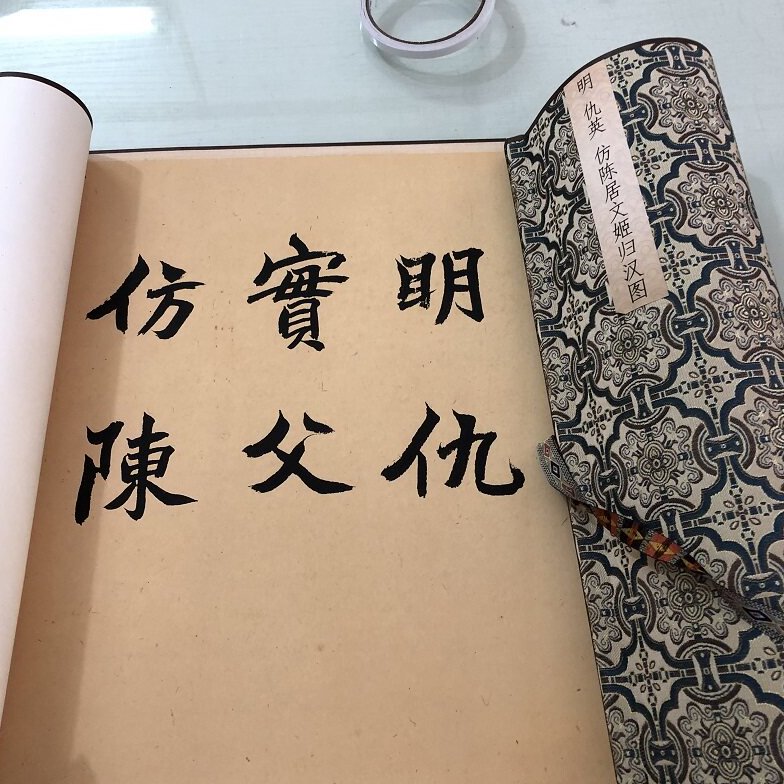 明 仇英 仿陈居文姬归汉图
明仇
實父
仿陳